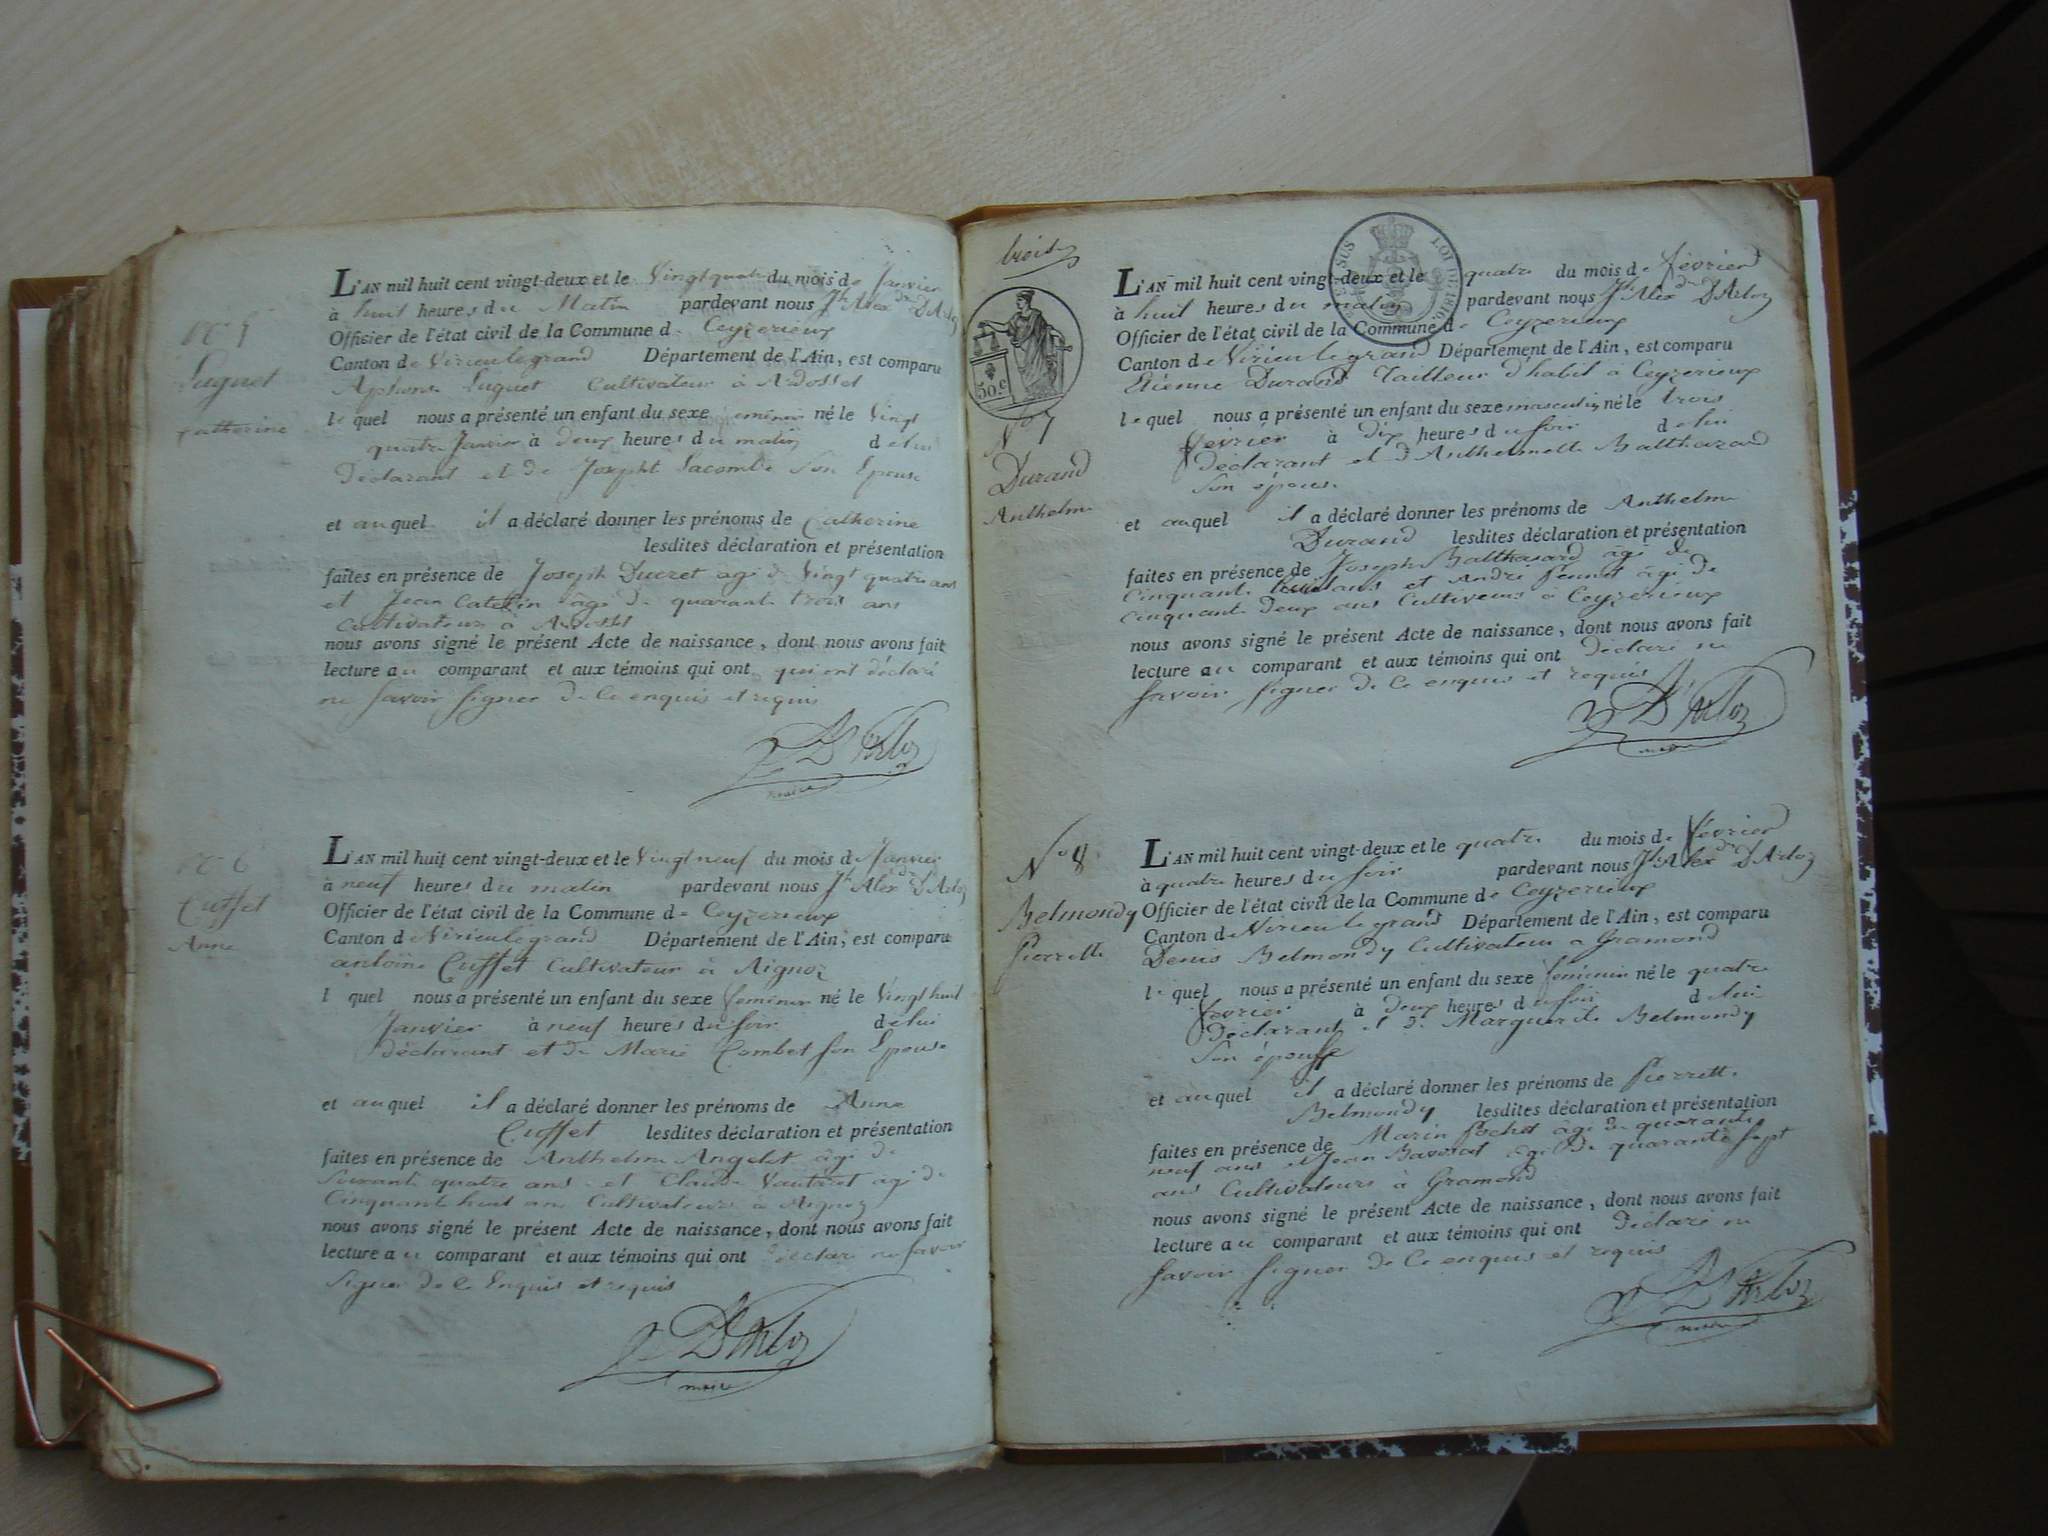 N° 5
Luquet
Catherine
L'AN mil huit cent vingt-deux et le Vingt quatre du mois de Janvier
à huit heures du Matin pardevant nous Jh Alexdre D'Arloz
Officier de l'état civil de la Commune de Ceyzerieux
Canton de Virieulegrand Département de l'Ain, est comparu
Luquet Cultivateur à Ardosset
lequel nous a présenté un enfant du sexe feminin né le Vingt
quatre Janvier à deux heures du matin de lui
Déclarant et de Josepht Lacombe Son Epouse
et auquel il a déclaré donner les prénoms de Catherine
lesdites déclaration et présentation
faites en présence de Joseph Ducret agé de Vingt quatre ans
et Jean Catelin âgé de quarante trois ans
Cultivateurs à Ardosset
nous avons signé le présent Acte de naissance, dont nous avons fait
lecture au comparant et aux témoins qui ont qui ont déclaré
ne Savoir Signer de Ce enquis et requis
D'Arloz
maire
N° 6
Cuffet
Anne
L'AN mil huit cent vingt-deux et le Vingt neuf du mois de Janvier
à neuf heures du matin pardevant nous Jh Alexdre D'Arloz
Officier de l'état civil de la Commune de Ceyzerieux
Canton de Virieulegrand Département de l'Ain, est comparu
antoine Cuffet Cultivateur à Aignoz
l quel nous a présenté un enfant du sexe feminin né le Vingt huit
Janvier à neuf heures du soir de lui
déclarant et de Marie Combet son Epouse
et auquel il a déclaré donner les prénoms de Anne
Cuffet lesdites déclaration et présentation
faites en présence de Anthelme Angelot âgé de
Soixante quatre ans et Claude Vautret agé de
Cinquante huit ans Cultivateurs à Aignoz
nous avons signé le présent Acte de naissance, dont nous avons fait
lecture au comparant et aux témoins qui ont déclaré ne Savoir
Signer de Ce Enquis et requis
D'Arloz
maire
trois
50 c
LOI DE 1816.
N° 7
Durand
Anthelme
L'AN mil huit cent vingt-deux et le quatre du mois de février
à huit heures du matin pardevant nous Jh Alexdre D'Arloz
Officier de l'état civil de la Commune de Ceyzerieux
Canton de Virieulegrand Département de l'Ain, est comparu
Etienne Durand Tailleur d'habit à Ceyzerieux
lequel nous a présenté un enfant du sexe masculin né le trois
février à dix heures du soir de lui
déclarant et d'Anthelmette Balthazard
Son épouse
et auquel il a déclaré donner les prénoms de Anthelme
Durand lesdites déclaration et présentation
faites en présence de Joseph Balthazard âgé de
Cinquante huit ans et André Pennet âgé de
Cinquante Deux ans Cultiveurs à Ceyzerieux
nous avons signé le présent Acte de naissance, dont nous avons fait
lecture au comparant et aux témoins qui ont Déclaré ne
savoir signer de Ce enquis et requis
D'Arloz
maire
N° 8
Belmondy
Pierrette
L'AN mil huit cent vingt-deux et le quatre du mois de février
à quatre heures du soir pardevant nous Jh Alexdre D'Arloz
Officier de l'état civil de la Commune de Ceyzerieux
Canton de Virieulegrand Département de l'Ain, est comparu
Denis Belmondy Cultivateur a Gramond
lequel nous a présenté un enfant du sexe feminin né le quatre
février à deux heures du soir de lui
Déclarant et de Marguerite Belmondy
Son épouse
et auquel il a déclaré donner les prénoms de Pierrette
Belmondy lesdites déclaration et présentation
faites en présence de Marin Pochet âgé de quarante
neuf ans et Jean Bavosat âgé de quarante sept
ans Cultivateurs à Gramond
nous avons signé le présent Acte de naissance, dont nous avons fait
lecture au comparant et aux témoins qui ont déclaré ne
Savoir Signer de Ce enquis et requis
D'Arloz
maire